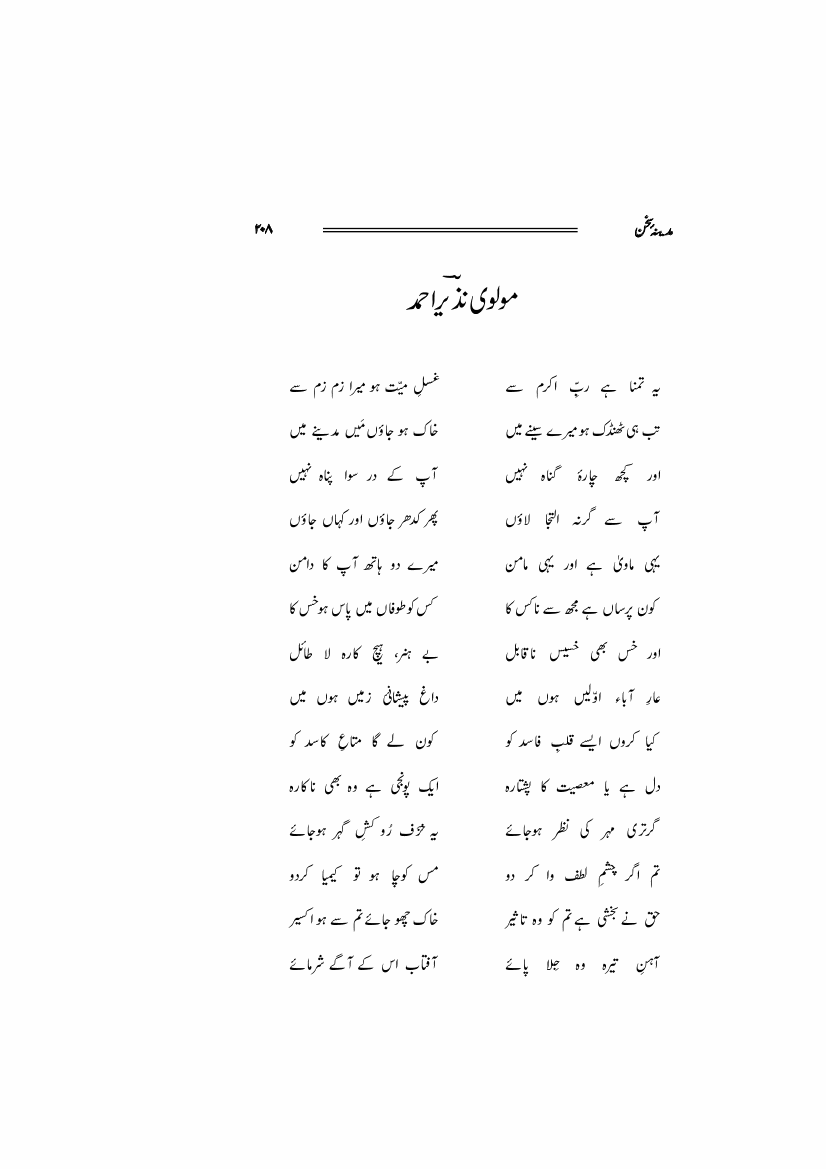 مدینہ سخن ۲۰۸
مولوی نذیر احمد
یہ تمنا ہے ربِّ اکرم سے غسلِ میّت ہو میرا زم زم سے
تب ہی ٹھنڈک ہو میرے سینے میں خاک ہو جاؤں مَیں مدینے میں
اور کچھ چارۂ گناہ نہیں آپ کے در سوا پناہ نہیں
آپ سے گر نہ التجا لاؤں پھر کدھر جاؤں اور کہاں جاؤں
یہی ماویٰ ہے اور یہی مامن میرے دو ہاتھ آپ کا دامن
کون پرساں ہے مجھ سے ناکس کا کس کو طوفاں میں پاس ہو خس کا
اور خس بھی خسیس ناقابل بے ہنر، ہیچ کارہ لا طائل
عارِ آباء اوّلیں ہوں میں داغِ پیشانیٔ زمیں ہوں میں
کیا کروں ایسے قلبِ فاسد کو کون لے گا متاعِ کاسد کو
دل ہے یا معصیت کا پشتارہ ایک پونجی ہے وہ بھی ناکارہ
گر تری مہر کی نظر ہوجائے یہ خزف رُوکشِ گہر ہوجائے
تم اگر چشمِ لطف وا کر دو مس کو چاہو تو کیمیا کردو
حق نے بخشی ہے تم کو وہ تاثیر خاک چھو جائے تم سے ہو اکسیر
آہنِ تیرہ وہ جِلا پائے آفتاب اس کے آگے شرمائے